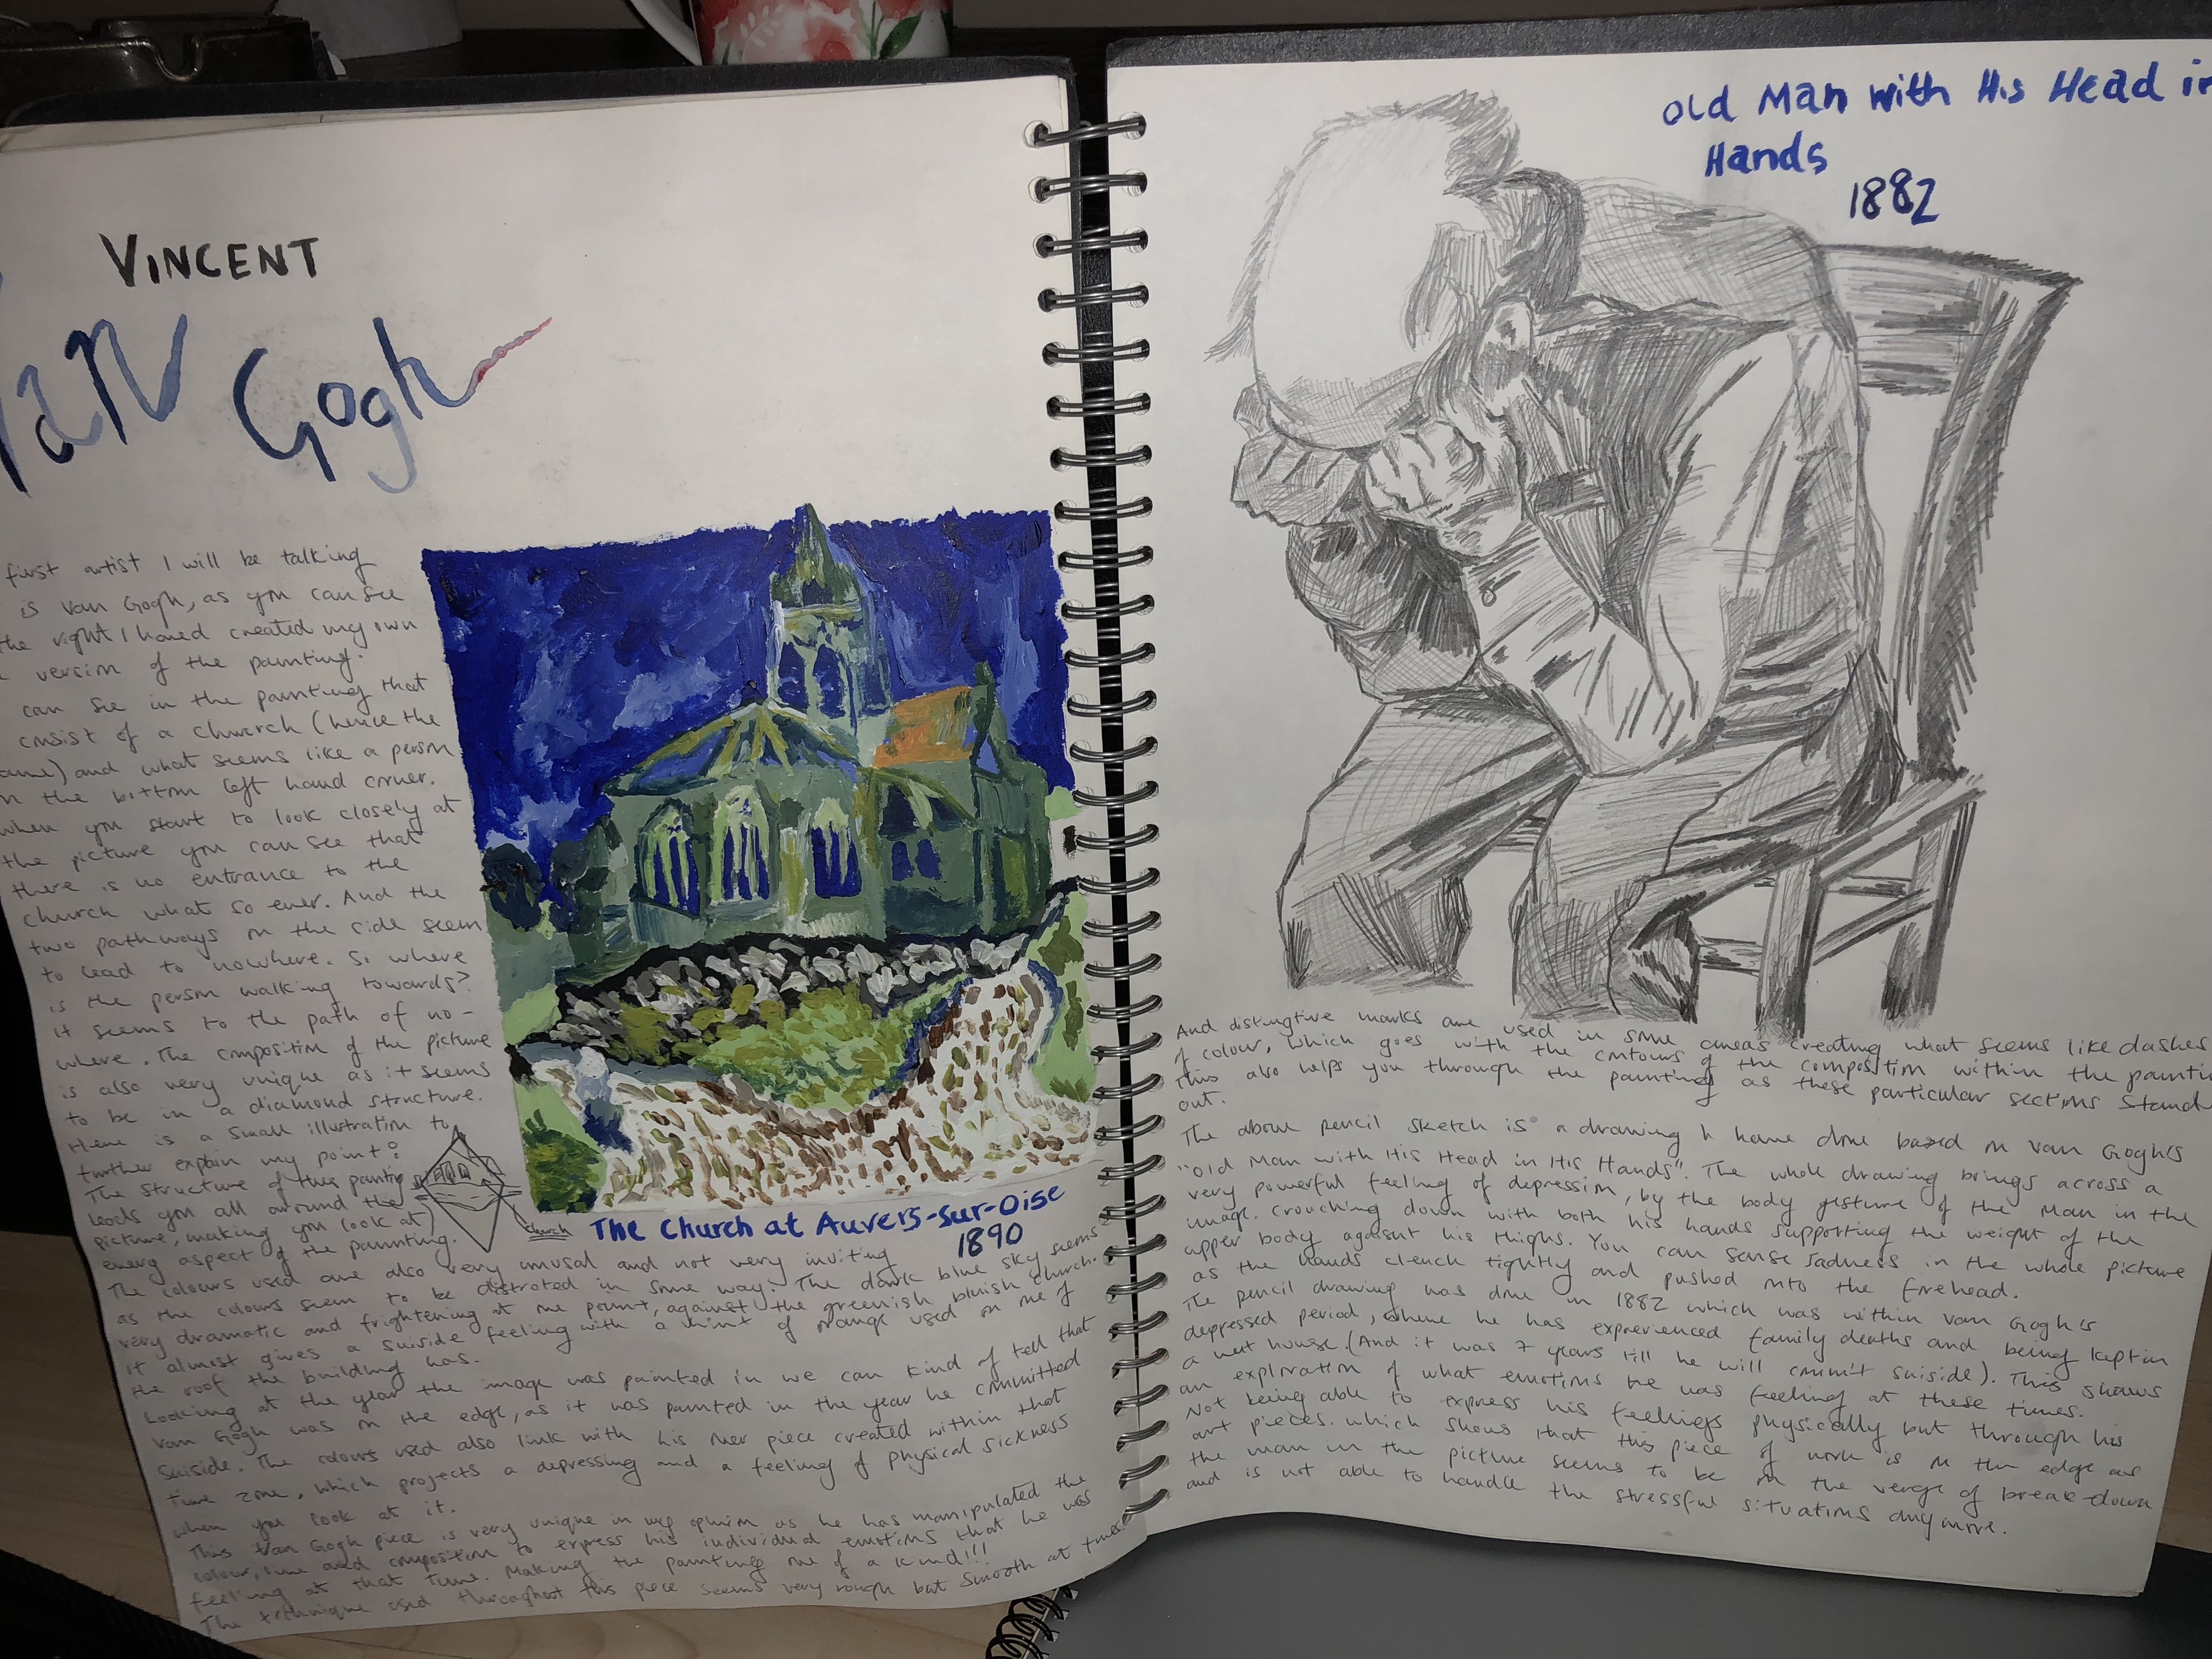 VINCENT
Van Gogh
first artist I will be talking
is Van Gogh, as you can see
the right I haved created my own
version of the painting.
can see in the painting that
consist of a church (hence the
ame) and what seems like a person
n the bottom left hand corner.
when you start to look closely at
the picture you can see that
there is no entrance to the
church what so ever. And the
two pathways on the side seem
to lead to nowhere. So where
is the person walking towards?
it seems to the path of no-
where. The composition of the picture
is also very unique as it seems
to be in a diamond structure.
Here is a small illustration to
further explain my point:
The structure of this painting
leads you all around the
picture, making you look at
every aspect of the painting.
church
The Church at Auvers-sur-Oise
1890
The colours used are also very unusual and not very inviting
as the colours seem to be distroted in some way. The dark blue sky seems
very dramatic and frightening at one point, against the greenish bluish church.
it almost gives a suiside feeling with a hint of orange used on one of
the roof the building has.
Looking at the year the image was painted in we can kind of tell that
Van Gogh was on the edge, as it was painted in the year he committed
suiside. The colours used also link with his other piece created within that
time zone, which projects a depressing and a feeling of physical sickness
when you look at it.
This Van Gogh piece is very unique in my opinion as he has manipulated the
colour, line and composition to express his individual emotions that he was
feeling at that time. Making the painting one of a kind!!!
The technique used throughout this piece seems very rough but smooth at times.
Old Man with His Head in
Hands
1882
And distingtive marks are used in some areas creating what seems like dashes
of colour, which goes with the contours of the composition within the paintin
this also helps you through the painting as these particular sections stand
out.
The above pencil sketch is a drawing I have done based on Van Gogh's
"Old Man with His Head in His Hands". The whole drawing brings across a
very powerful feeling of depression, by the body gesture of the Man in the
image. Crouching down with both his hands supporting the weight of the
upper body against his thighs. You can sense sadness in the whole picture
as the hands clench tightly and pushed into the forehead.
The pencil drawing was done in 1882 which was within Van Gogh's
depressed period, where he has exprerienced family deaths and being kept in
a nut house. (And it was 7 years till he will commit suiside). This shows
an exploration of what emotions he was feeling at these times.
Not being able to express his feelings physically but through his
art pieces. which shows that this piece of work is on the edge as
the man in the picture seems to be on the verge of break-down
and is not able to handle the stressful situations anymore.